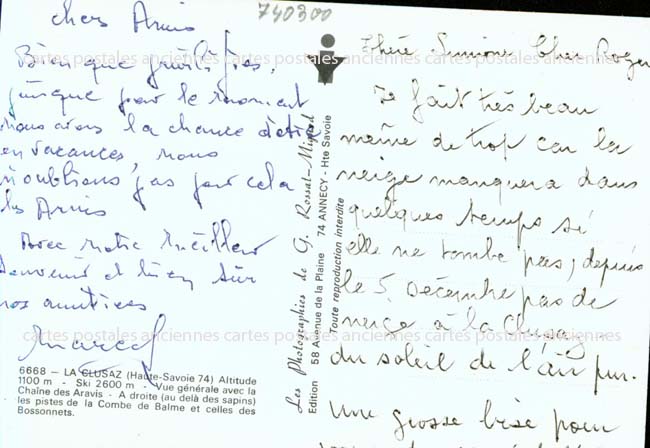 740300
chers Amis
Bien que
jusque pour le moment
nous avons la chance d'être
en vacances, nous
n'oublions pas pour cela
les Amis
Avec notre meilleur
souvenir et bien sûr
nos amitiés
Marcel
6668 — LA CLUSAZ (Haute-Savoie 74) Altitude
1100 m - Ski 2600 m - Vue générale avec la
Chaîne des Aravis - A droite (au delà des sapins)
les pistes de la Combe de Balme et celles des
Bossonnets.
Les Photographies de G. Rossat-Mignod
Edition 58 Avenue de la Plaine 74 ANNECY - Hte Savoie
Toute reproduction interdite
Chère Simone Cher Roger
Il fait très beau
même de trop car la
neige manquera dans
quelques temps si
elle ne tombe pas, depuis
le 5 Décembre pas de
neige à la Clusaz
du soleil de l'air pur.
Une grosse bise pour
cartes postales anciennes cartes postales anciennes cartes postales anciennes
cartes postales anciennes cartes postales anciennes cartes postales anciennes